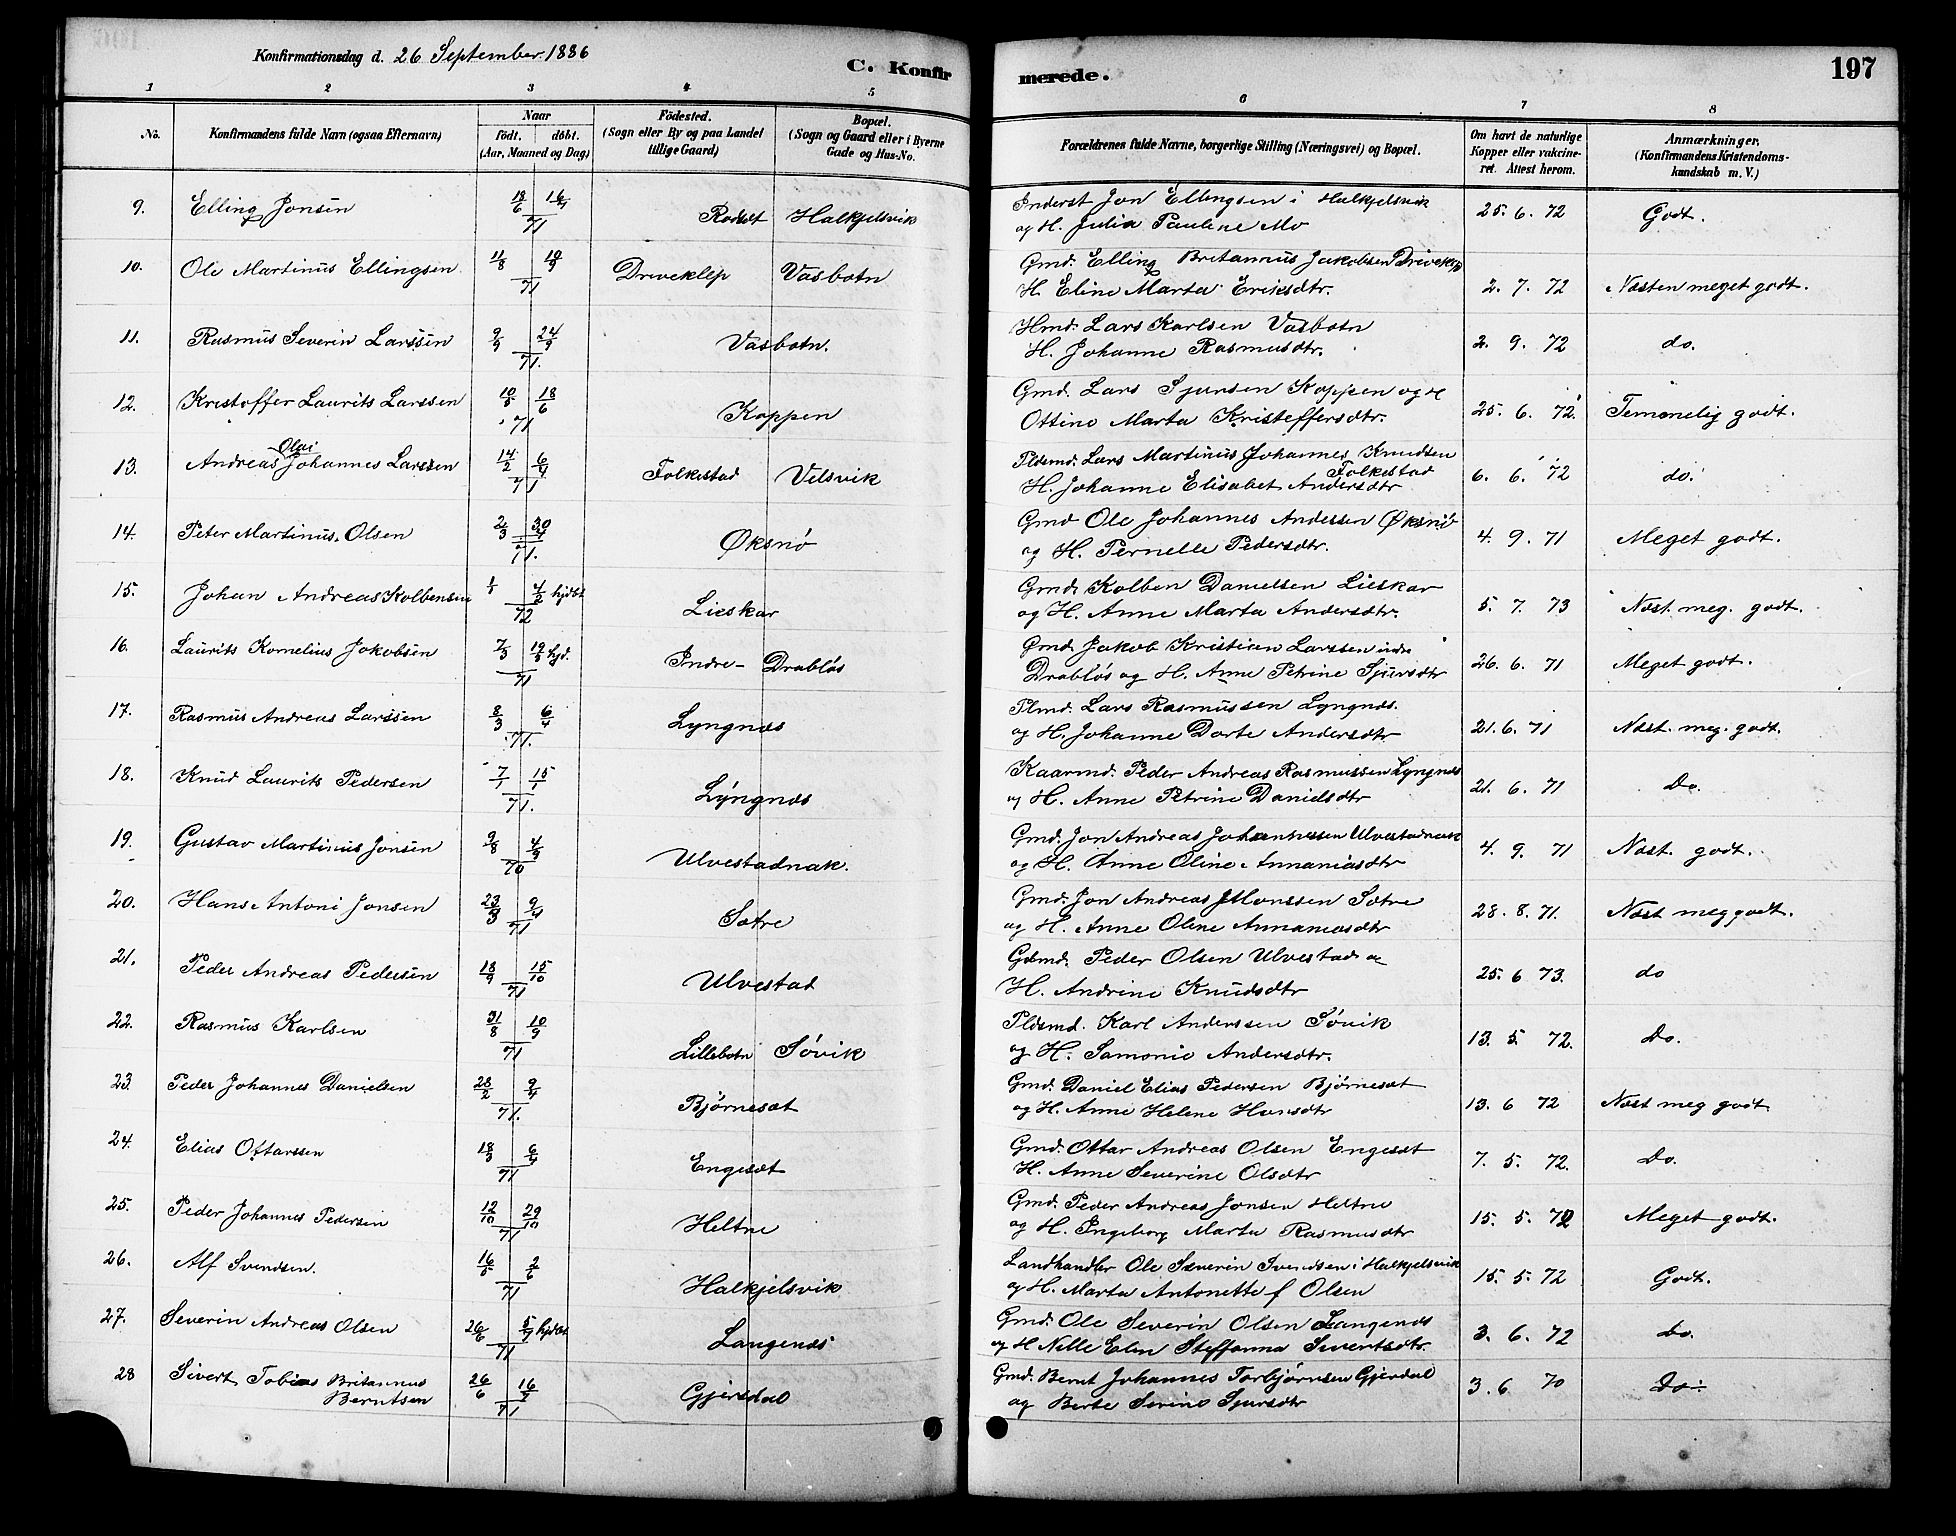 Konfirmationsdag d. 26 September 1886
C. Konfirmerede.
197
1 2 3 4 5 6 7 8
No. Konfirmandens fulde Navn (ogsaa Efternavn) Naar født. døbt. (Aar, Maaned og Dag) Fødested. (Sogn eller By og paa Landet tillige Gaard) Bopæl. (Sogn og Gaard eller i Byerne Gade og Hus-No. Forældrenes fulde Navne, borgerlige Stilling (Næringsvei) og Bopæl. Om havt de naturlige Kopper eller vakcineret. Attest herom. Anmærkninger. (Konfirmandens Kristendomskundskab m. V.)
9. Elling Jonsen 18/6 16/7 71 Rodset Halkjelsvik Inderst Jon Ellingsen i Halkjelsvik
og H. Julia Pauline Mo 25. 6. 72 Godt.
10. Ole Martinus Ellingsen 11/8 10/9 71 Driveklep Vasbotn Gmd. Elling Britannus Jakobsen Driveklep
H. Eline Marta Eriksdtr. 2. 7. 72 Næsten meget godt.
11. Rasmus Severin Larssen 9/9 24/9 71. Vasbotn. Hmd. Lars Karlsen Vasbotn
H. Johanne Rasmusdtr. 2. 9. 72 do.
12. Kristoffer Laurits Larssen 10/5 18/6 71 Koppen Gmd. Lars Sjursen Koppen og H
Ottine Marta Kristeffersdtr. 25. 6. 72. Temmelig godt.
13. Andreas Olai Johannes Larssen 14/2 6/4 71 Folkestad Velsvik Pldsmd. Lars Martinus Johannes Knudsen Folkestad
H. Johanne Elisabet Andersdtr 6. 6. 72 do.
14. Peter Martinus Olsen 2/3 30/4 71. Øksnø Gmd Ole Johannes Anderssen Øksnø
og H. Pernelle Pedersdtr. 4. 9. 71 Meget godt.
15. Johan Andreas Kolbensen 1/1 4/2 hjdbt 72 Lieskar Gmd. Kolben Danielsen Lieskar
og H. Anne Marta Andersdtr. 5. 7. 73 Næst. meg. godt.
16. Laurits Kornelius Jakobsen 7/3 19/3 hjd. 71 Indre- Drabløs Gmd. Jakob Kristian Larssen indre
Drabløs og H. Anne Petrine Sjursdtr 26. 6. 71 Meget godt.
17. Rasmus Andreas Larssen 8/3 6/4 71. Lyngnæs Plmd. Lars Rasmussen Lyngnæs.
og H. Johanne Dorte Andersdtr 21. 6. 71 Næst. meg. godt.
18. Knud Laurits Pedersen 7/1 15/1 71. Lyngnæs Kaarmd. Peder Andreas Rasmussen Lyngnæs
og H. Anne Petrine Danielsdtr 21. 6. 71 Do.
19. Gustav Martinus Jonsen 9/8 4/9 70 Ulvestadnak. Gmd. Jon Andreas Johannessen Ulvestadnak
og H. Anne Oline Annaniasdtr 4. 9. 71 Næst. godt.
20. Hans Antoni Jonsen 23/3 9/4 71 Sætre Gmd. Jon Andreas Monssen Sætre
og H. Anne Oline Annaniasdtr 28. 8. 71. Næst meg godt.
21. Peder Andreas Pedersen 18/9 15/10 71 Ulvestad Gdmd. Peder Olsen Ulvestad og
H. Andrine Knudsdtr 25. 6 73. do
22. Rasmus Karlsen 31/8 10/9 71 Lillebotn Søvik Pldsmd. Karl Anderssen Søvik
og H. Samonie Andersdtr. 13. 5. 72. Do.
23. Peder Johannes Danielsen 28/2 9/4 71. Bjørneset Gmd. Daniel Elias Pedersen Bjørneset
og H. Anne Helene Hansdtr 13. 6 72 Næst meg godt
24. Elias Ottarssen 18/3 6/4 71 Engeset Gmd. Ottar Andreas Olsen Engeset
H. Anne Severine Olsdtr 7. 5. 72. Do.
25. Peder Johannes Pedersen 12/10 29/10 71 Heltne Gmd. Peder Andreas Jonsen Heltne
og H. Ingeborg Marta Rasmusdtr 15. 5. 72 Meget godt.
26. Alf Svendsen. 16/5 2/6 71 Halkjelsvik Landhandler Ole Severin Svendsen i Halkjelsvik
og H. Marta Antonette f Olsen 15. 5. 72 Godt.
27. Severin Andreas Olsen 26/6 5/7 hjdbt 71 Langenæs Gmd. Ole Severin Olsen Langenæs
og H Nelle Elen Steffanna Sivertsdtr. 3. 6. 72 do.
28 Sivert Tobias Britannus Berntsen 26/6 16/7 71 Gjersdal Gmd. Bernt Johannes Torbjørnsen Gjerdal
og Berte Serine Sjursdtr 3. 6 70 Do